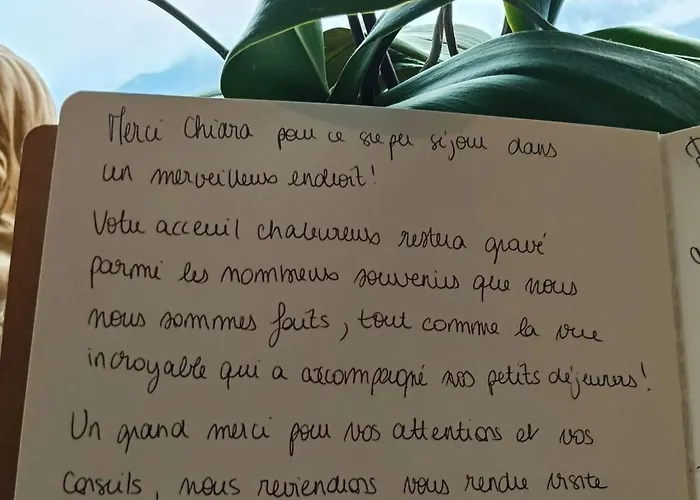 Merci Chiara pour ce super séjour dans
un merveilleux endroit !
Votre acceuil chaleureux restera gravé
parmi les nombreux souvenirs que nous
nous sommes faits, tout comme la vue
incroyable qui a accompagné nos petits déjeuners !
Un grand merci pour vos attentions et vos
conseils, nous reviendrons vous rendre visite